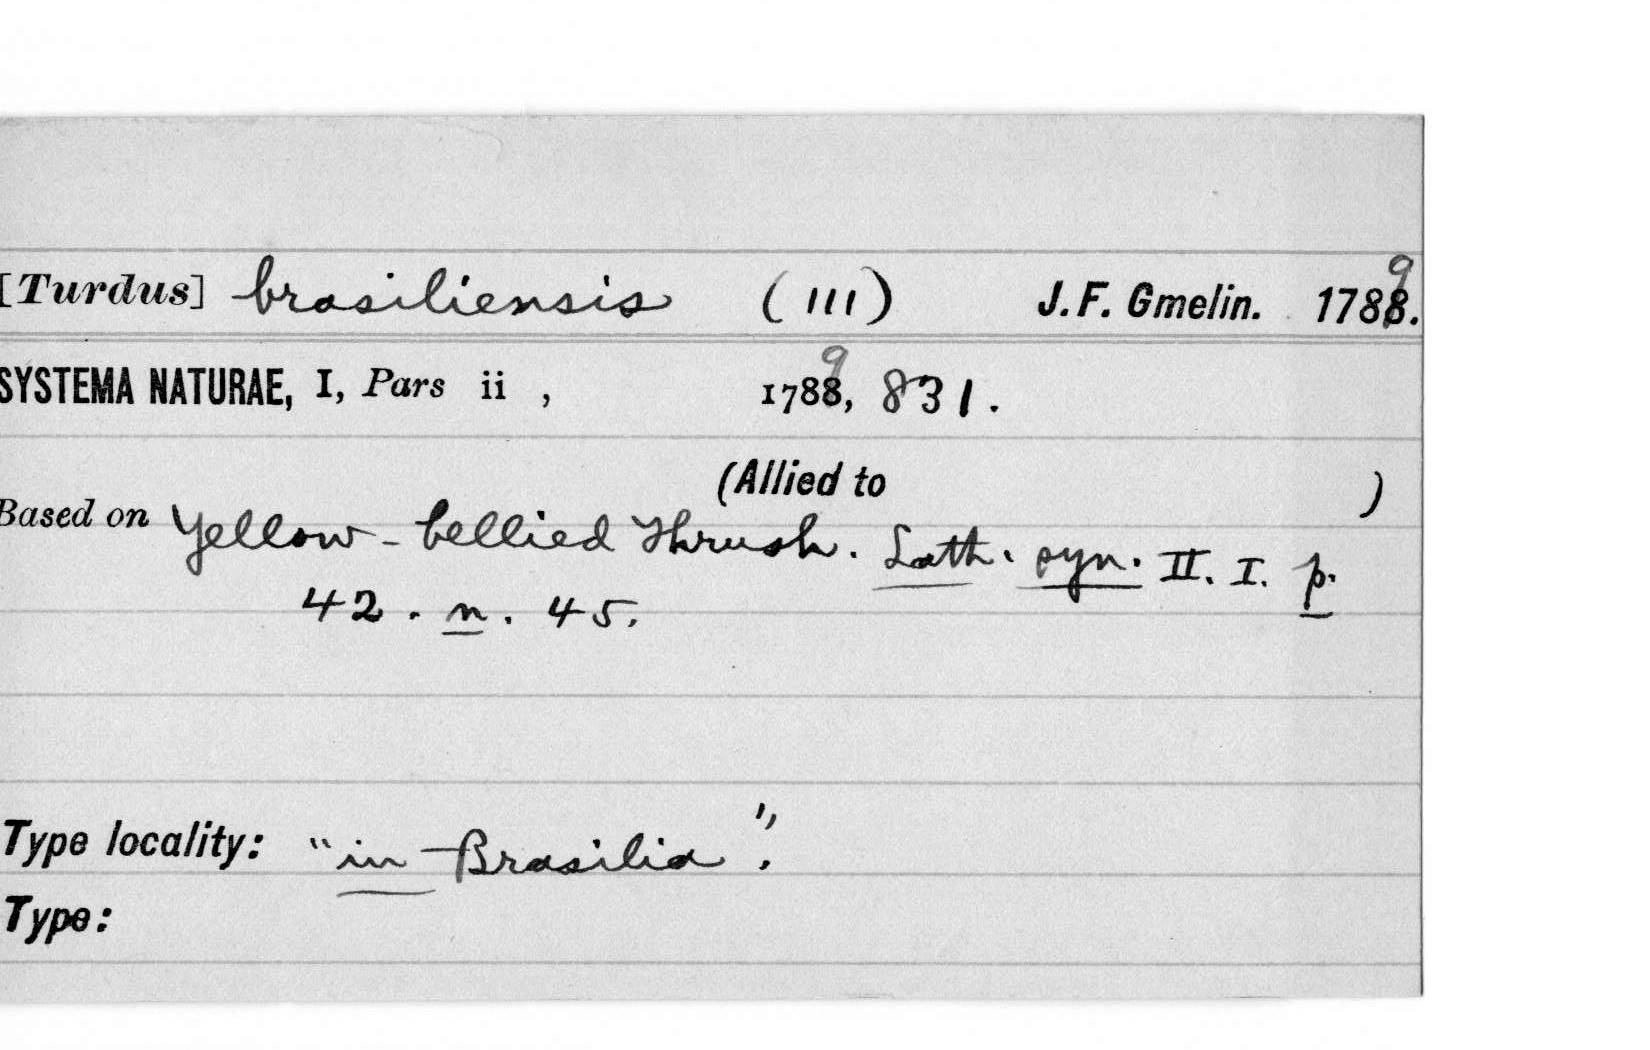 [Turdus] brasiliensis (111) J. F. Gmelin. 1788. 9
SYSTEMA NATURAE, I, Pars ii , 1788, 9 831.
(Allied to )
Based on Yellow-bellied Thrush. Lath. syn. II. I. p.
42. n. 45.
Type locality: "in Brasilia".
Type: